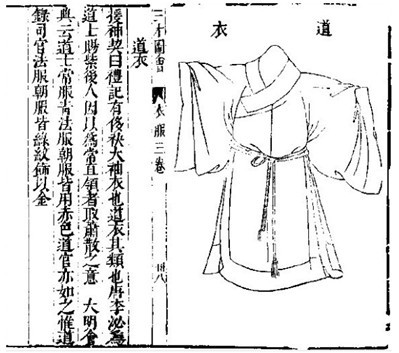 道衣
三才圖會 衣服三卷
道衣
援神契曰禮記有侈袂大袖衣也道衣其類也唐李泌為
道士賜紫後人因以為常直領者取蕭散之意 大明會
典云道士常服青法服朝服皆用赤色道官亦如之惟道
錄司官法服朝服皆綠紋飾以金